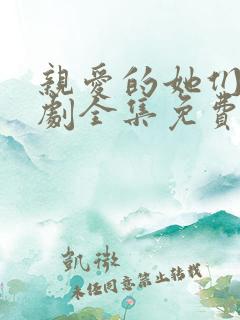 親愛的她们
劇全集免費
凱璈
未經同意禁止轉載